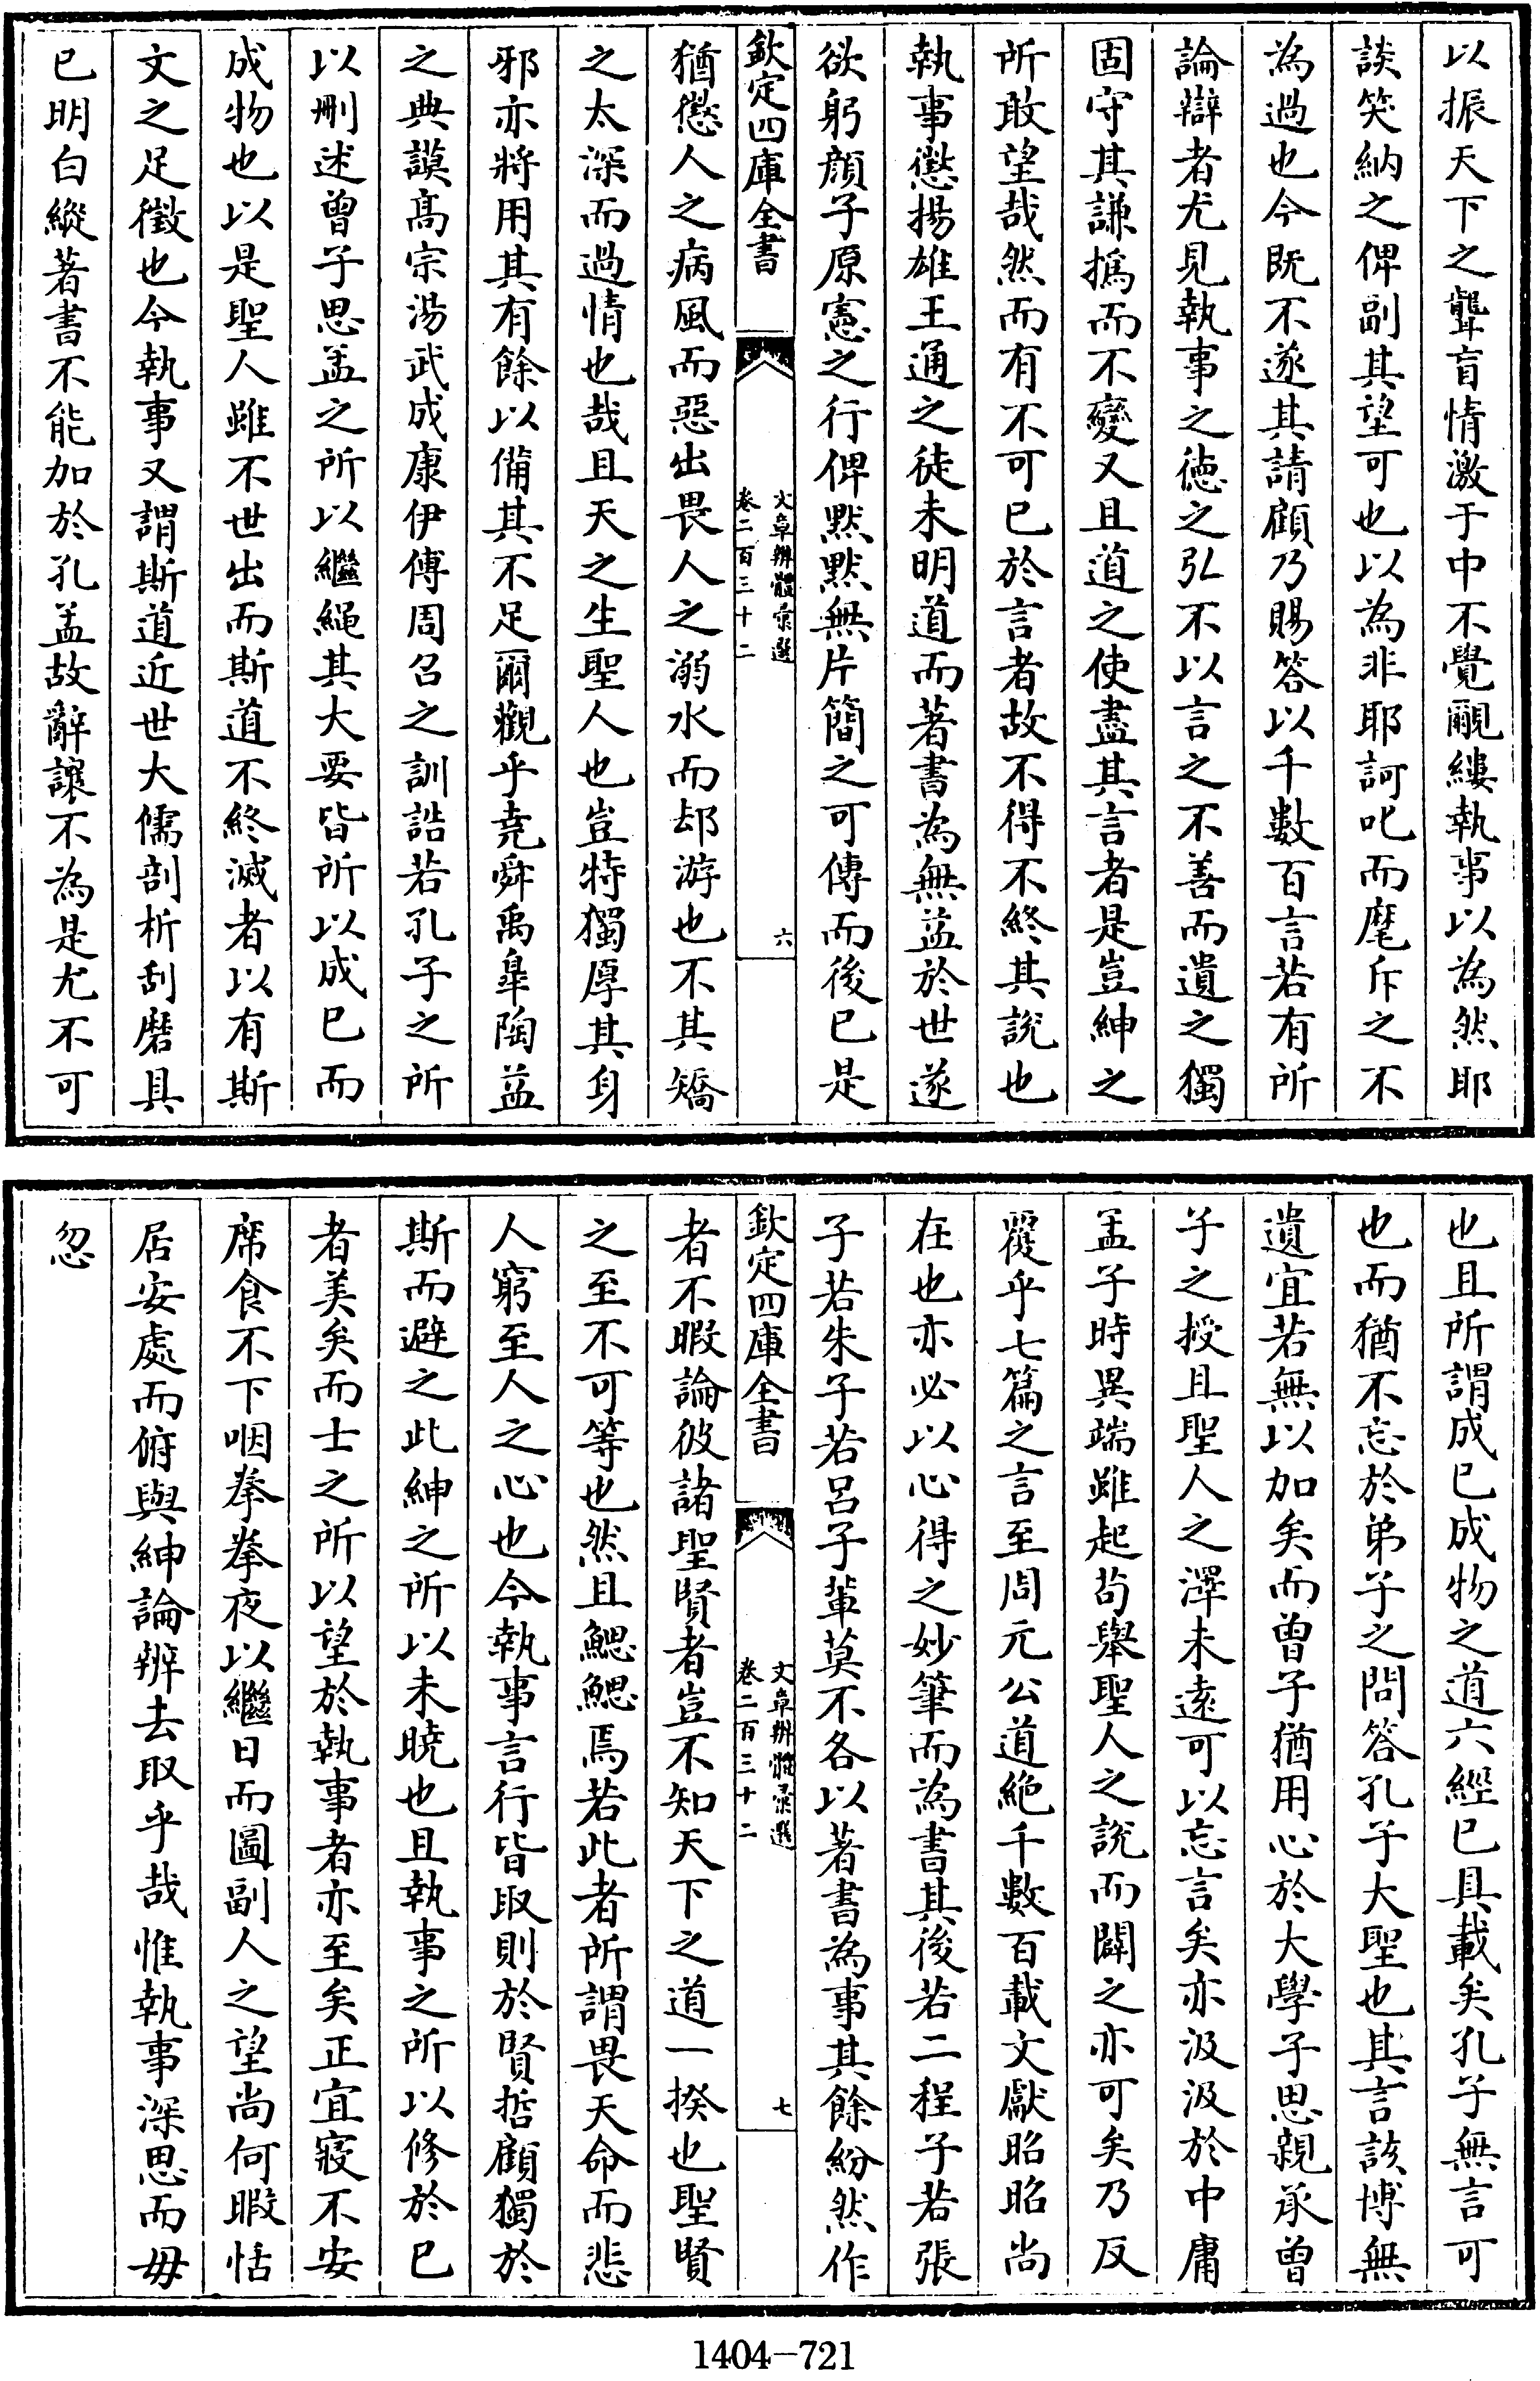 以振天下之聾盲情激于中不覺覼縷執事以為然耶
談笑納之俾副其望可也以為非耶訶叱而麾斥之不
為過也今既不遂其請顧乃賜答以千數百言若有所
論辯者尤見執事之徳之弘不以言之不善而遺之獨
固守其謙撝而不變又且道之使盡其言者是豈紳之
所敢望哉然而有不可已於言者故不得不終其說也
執事懲揚雄王通之徒未明道而著書為無益於世遂
欲躬顔子原憲之行俾黙黙無片簡之可傳而後已是
欽定四庫全書
文章辨體彚選
卷二百三十二
六
猶懲人之病風而惡出畏人之溺水而却游也不其矯
之太深而過情也哉且天之生聖人也豈特獨厚其身
邪亦將用其有餘以備其不足爾觀乎堯舜禹臯陶益
之典謨髙宗湯武成康伊傅周召之訓誥若孔子之所
以刪述曾子思孟之所以繼繩其大要皆所以成已而
成物也以是聖人雖不世出而斯道不終滅者以有斯
文之足徵也今執事又謂斯道近世大儒剖析刮磨具
已明白縱著書不能加於孔孟故辭讓不為是尤不可
也且所謂成已成物之道六經已具載矣孔子無言可
也而猶不忘於弟子之問答孔子大聖也其言該博無
遺宜若無以加矣而曾子猶用心於大學子思親承曾
子之授且聖人之澤未遠可以忘言矣亦汲汲於中庸
孟子時異端雖起茍舉聖人之說而闢之亦可矣乃反
覆乎七篇之言至周元公道絶千數百載文獻昭昭尚
在也亦必以心得之妙筆而為書其後若二程子若張
子若朱子若呂子輩莫不各以著書為事其餘紛然作
欽定四庫全書
文章辨體彚選
卷二百三十二
七
者不暇論彼諸聖賢者豈不知天下之道一揆也聖賢
之至不可等也然且鰓鰓焉若此者所謂畏天命而悲
人窮至人之心也今執事言行皆取則於賢哲顧獨於
斯而避之此紳之所以未曉也且執事之所以修於已
者美矣而士之所以望於執事者亦至矣正宜寢不安
席食不下咽拳拳夜以繼日而圖副人之望尚何暇恬
居安處而俯與紳論辨去取乎哉惟執事深思而毋
忽
1404-721